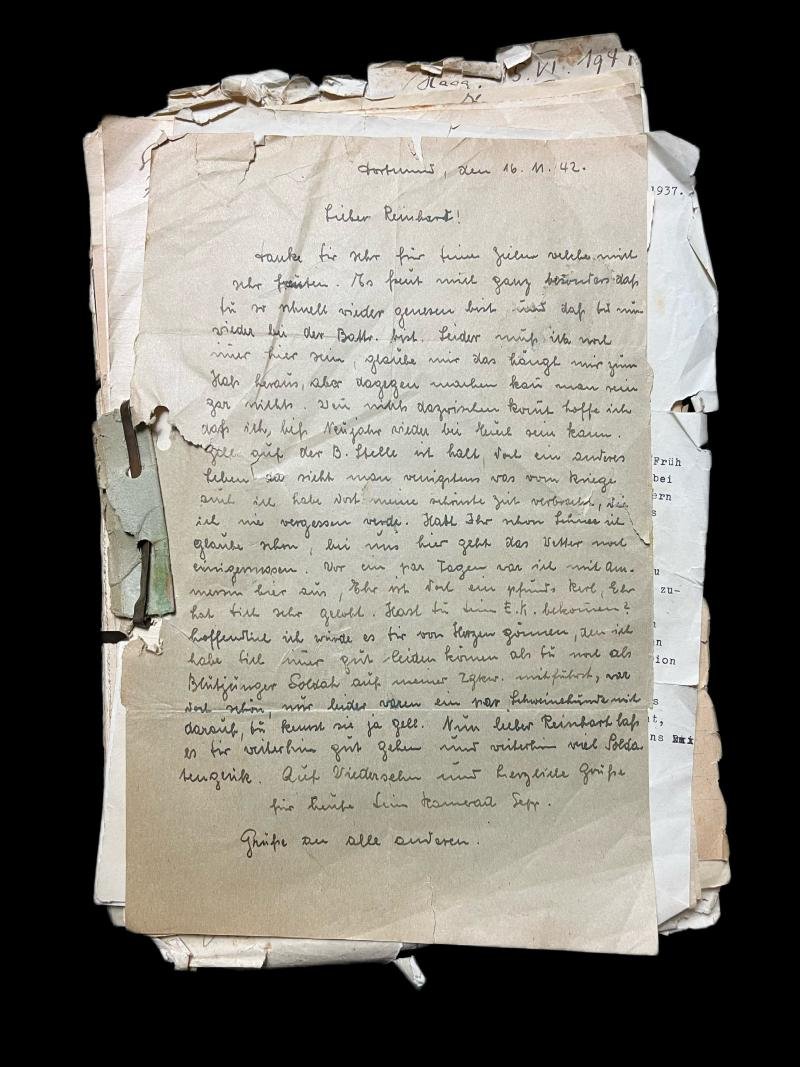 Haag. 15. VI. 1941
Dortmund, den 16. 11. 42.
1937.
Lieber Reinhart!
Danke Dir sehr für Deine Zeilen welche mich
sehr freuten. Es freut mich ganz besonders daß
Du so schnell wieder genesen bist, und daß Du nun
wieder bei der Battr. bist. Leider muß ich noch
imer hier sein, glaube mir das hängt mir zum
Hals heraus, aber dagegen machen kan man rein
gar nichts. Wen nichts dazwischen komt hoffe ich
daß ich, biß Neujahr wieder bei Euch sein kann.
Gell auf der B. Stelle ist halt doch ein anderes
Leben da sieht man wenigstens was vom Kriege
auch ich habe dort meine schönste Zeit verbracht, die
ich nie vergessen werde. Habt Ihr schon Schnee ich
glaube schon, bei uns hier geht das Wetter noch
einigermassen. Vor ein par Tagen war ich mit Am-
mern hier aus, Ehr ist doch ein pfunds Kerl, Ehr
hat Dich sehr gelobt. Hast Du Dein E.K. bekommen?
hoffendlich ich würde es Dir von Herzen gönnen, den ich
habe Dich imer gut leiden können als Du noch als
Blutjunger Soldat auf meiner Zgkw. mitfuhrst, war
doch schön, nur leider waren ein par Schweinehunde mit
darauf, Du kennst sie ja gell. Nun lieber Reinhart laß
es Dir weiterhin gut gehen und weiterhin viel Solda
tenglük. Auf Wiedersehn und herzliche Grüße
für heute Dein Kamerad Sepp.
Grüße an alle anderen.
Früh
bei
ern
s
u
zu-
n
en
ion
s
t,
ns